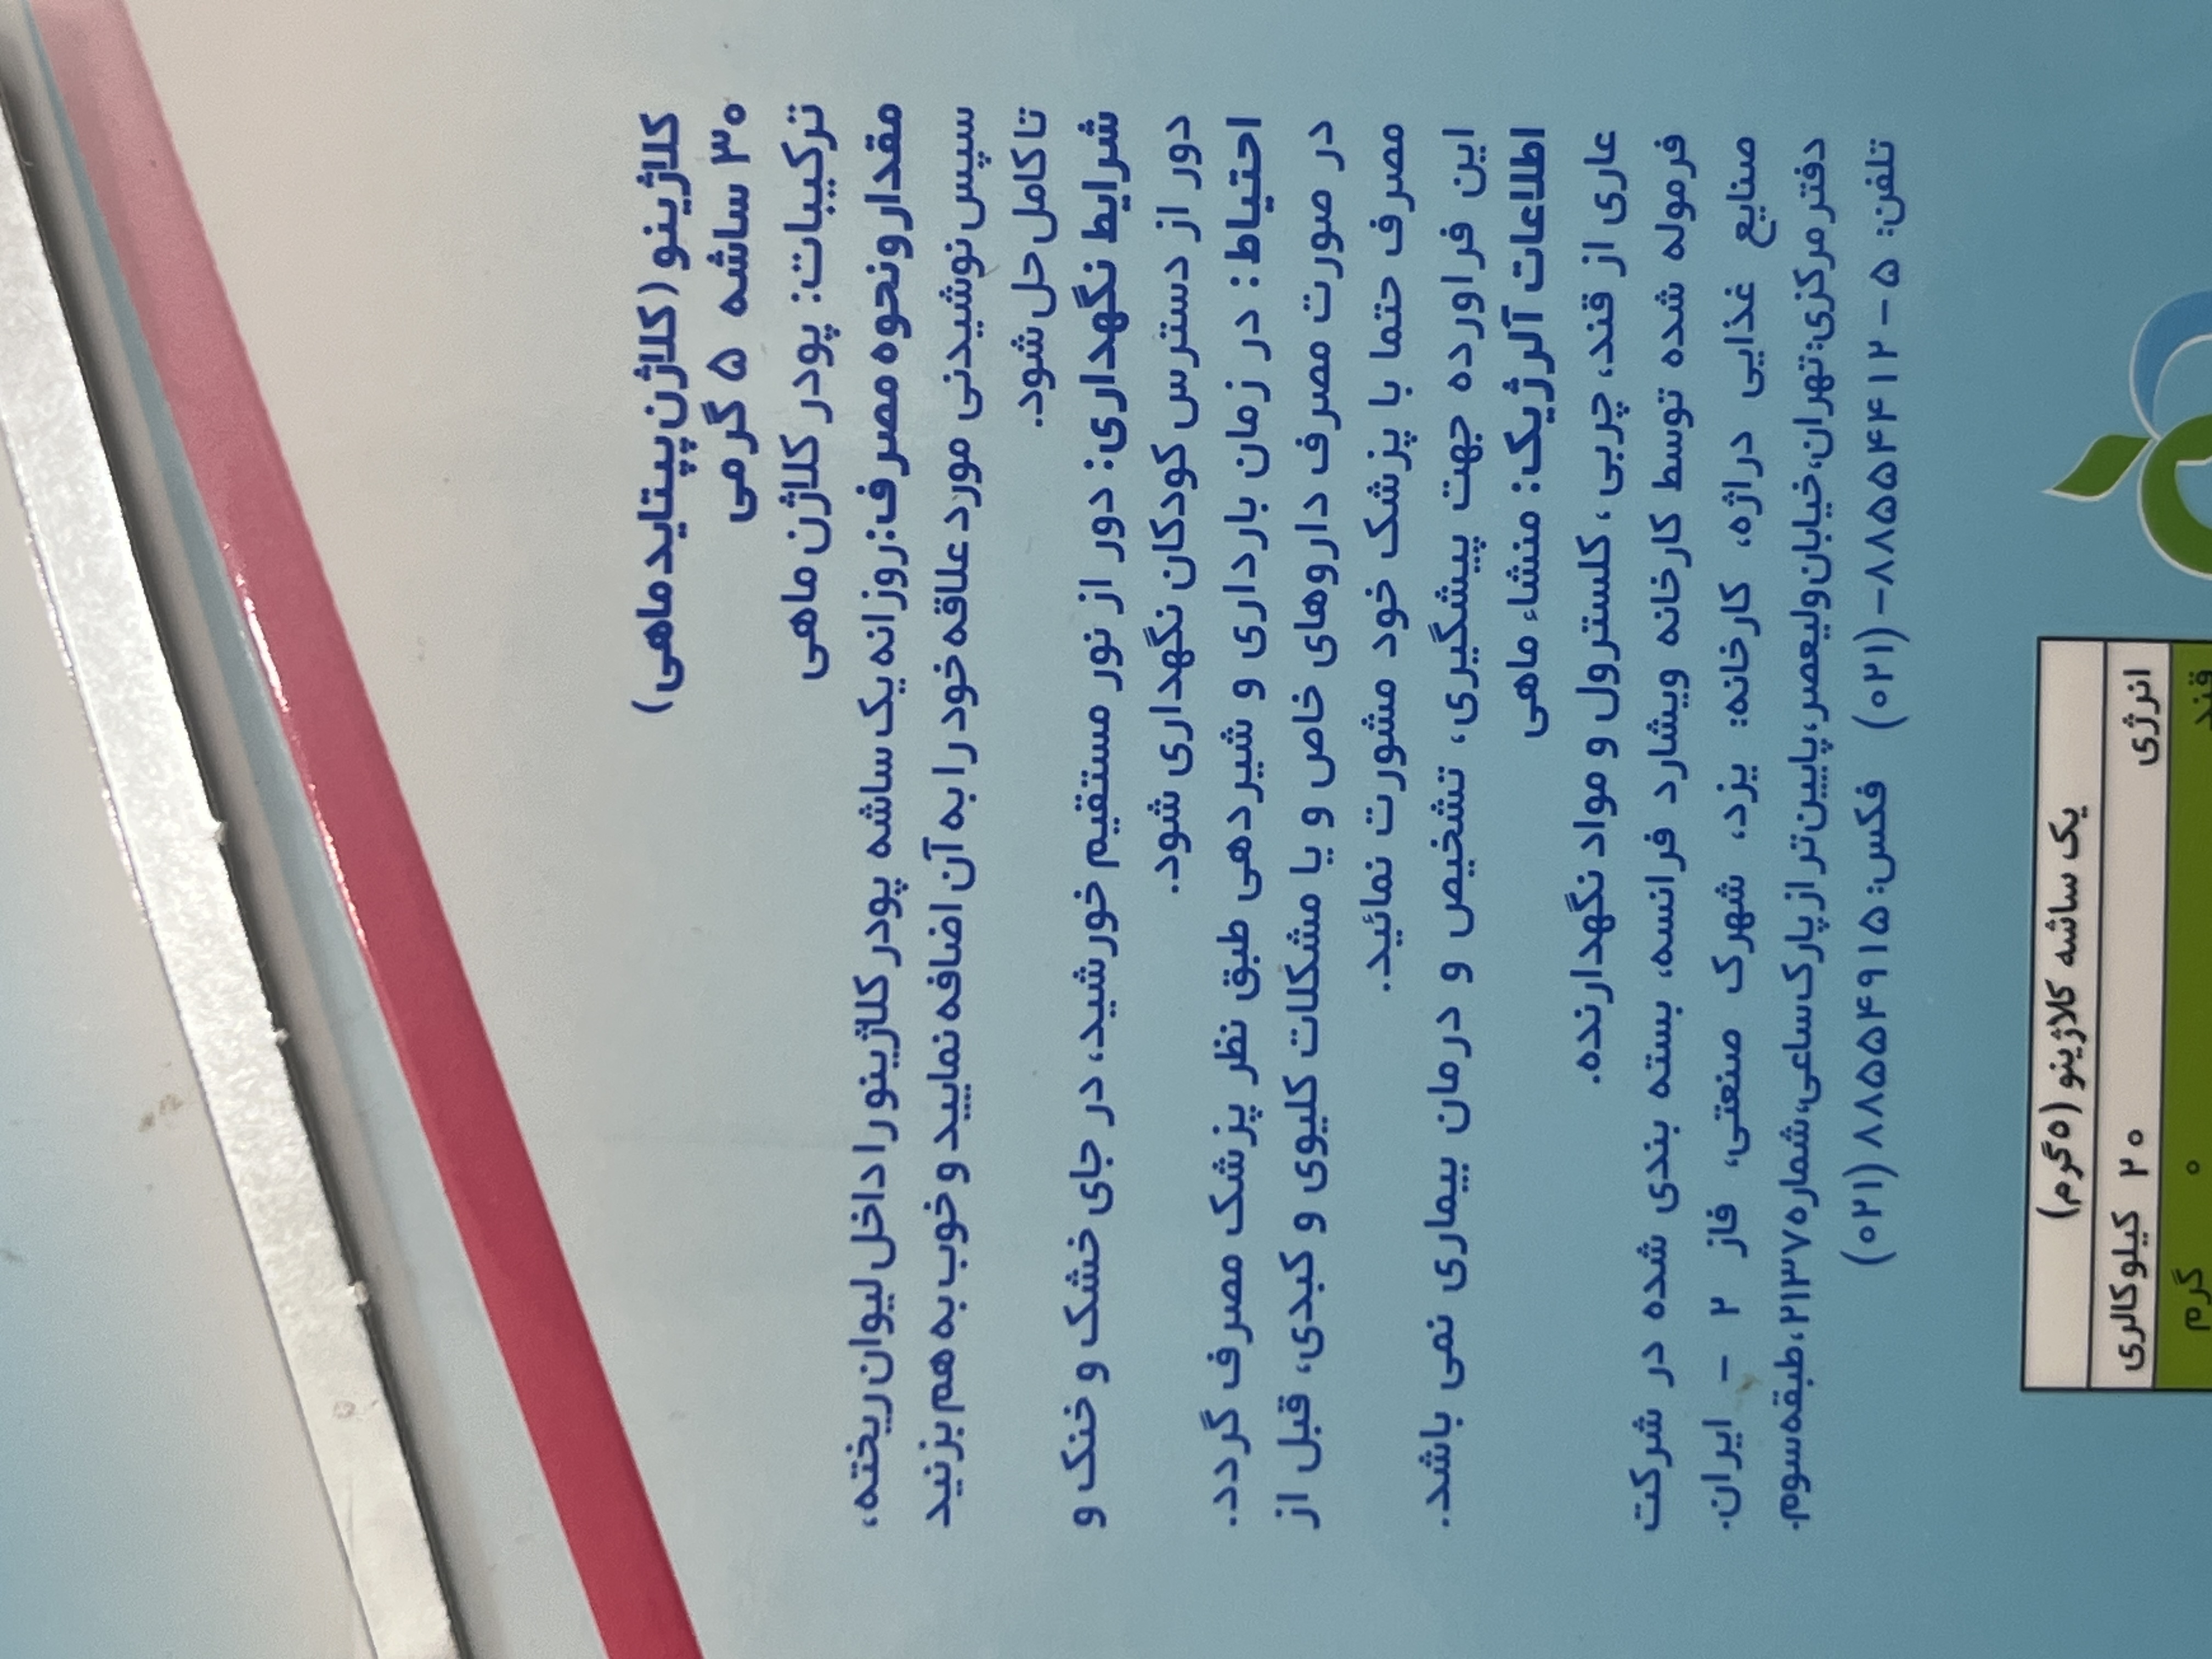 کلاژینو (کلاژن پپتاید ماهی)
۳۰ ساشه ۵ گرمی
ترکیبات: پودر کلاژن ماهی
مقدار و نحوه مصرف: روزانه یک ساشه پودر کلاژینو را داخل لیوان ریخته،
سپس نوشیدنی مورد علاقه خود را به آن اضافه نمایید و خوب به هم بزنید
تا کامل حل شود.
شرایط نگهداری: دور از نور مستقیم خورشید، در جای خشک و خنک و
دور از دسترس کودکان نگهداری شود.
احتیاط: در زمان بارداری و شیردهی طبق نظر پزشک مصرف گردد.
در صورت مصرف داروهای خاص و یا مشکلات کلیوی و کبدی، قبل از
مصرف حتما با پزشک خود مشورت نمائید.
این فراورده جهت پیشگیری، تشخیص و درمان بیماری نمی باشد.
اطلاعات آلرژیک: منشاء ماهی
عاری از قند، چربی، کلسترول و مواد نگهدارنده.
فرموله شده توسط کارخانه ویشارد فرانسه، بسته بندی شده در شرکت
صنایع غذایی دراژه، کارخانه: یزد، شهرک صنعتی، فاز ۲ - ایران.
دفتر مرکزی: تهران، خیابان ولیعصر، پایین تر از پارک ساعی، شماره ۲۱۳۷، طبقه سوم.
تلفن: ۵ - ۸۸۵۵۴۴۱۲-(۰۲۱) فکس: ۸۸۵۵۴۹۱۵ (۰۲۱)
یک ساشه کلاژینو (۵ گرم)
انرژی ۲۰ کیلوکالری
قند ۰ گرم